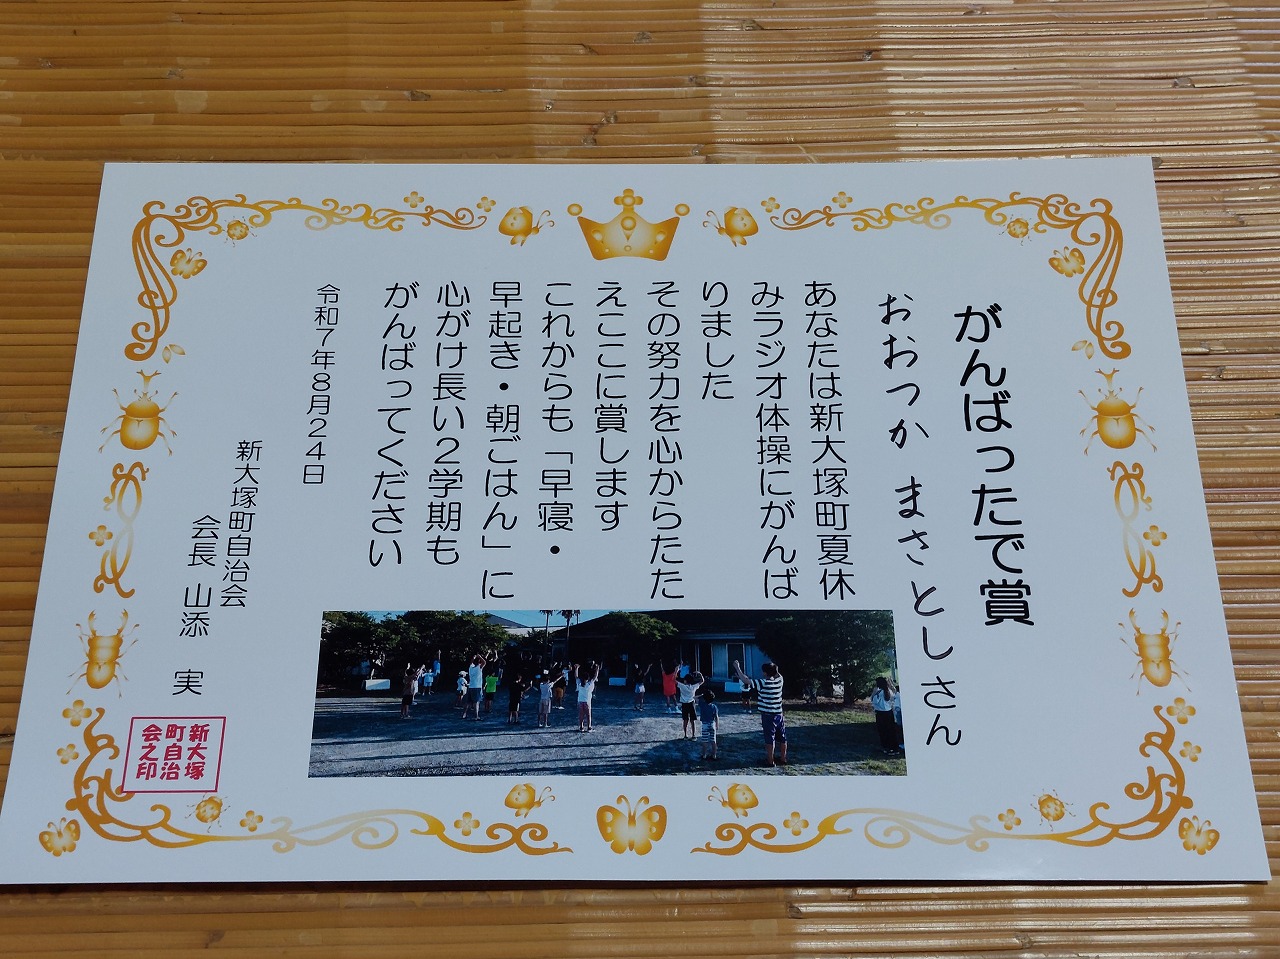 がんばったで賞
おおつか まさとしさん
あなたは新大塚町夏休
みラジオ体操にがんば
りました
その努力を心からたた
えここに賞します
これからも「早寝・
早起き・朝ごはん」に
心がけ長い2学期も
がんばってください
令和7年8月24日
新大塚町自治会
会長 山添 実
新大塚
町自治
会之印